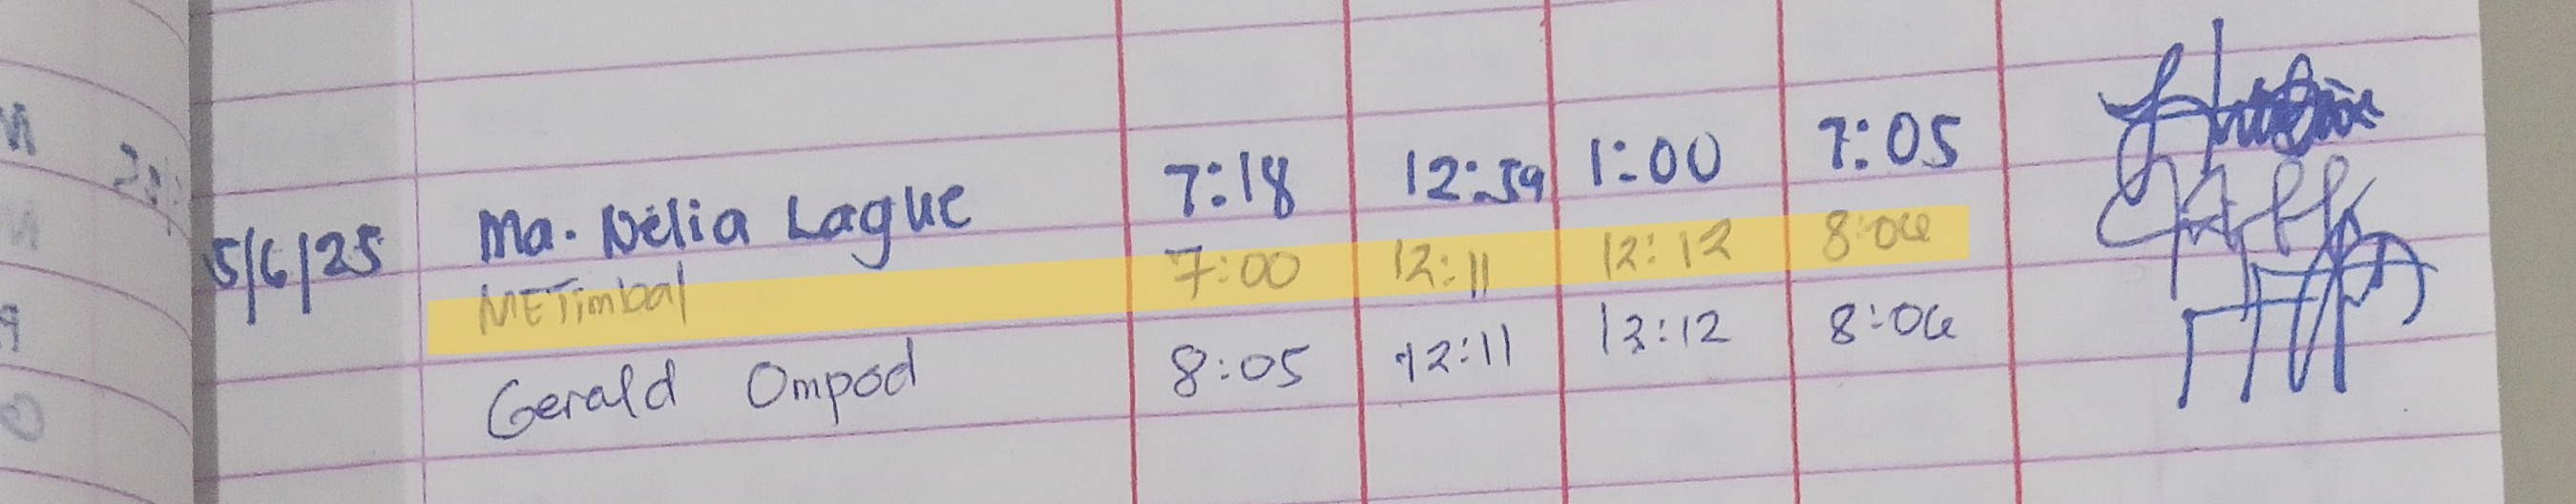 Ma. Nelia Lague 7:18 12:59 1:00 7:05
5/6/25
METimbal 7:00 12:11 12:12 8:06
Gerald Ompod 8:05 12:11 12:12 8:06